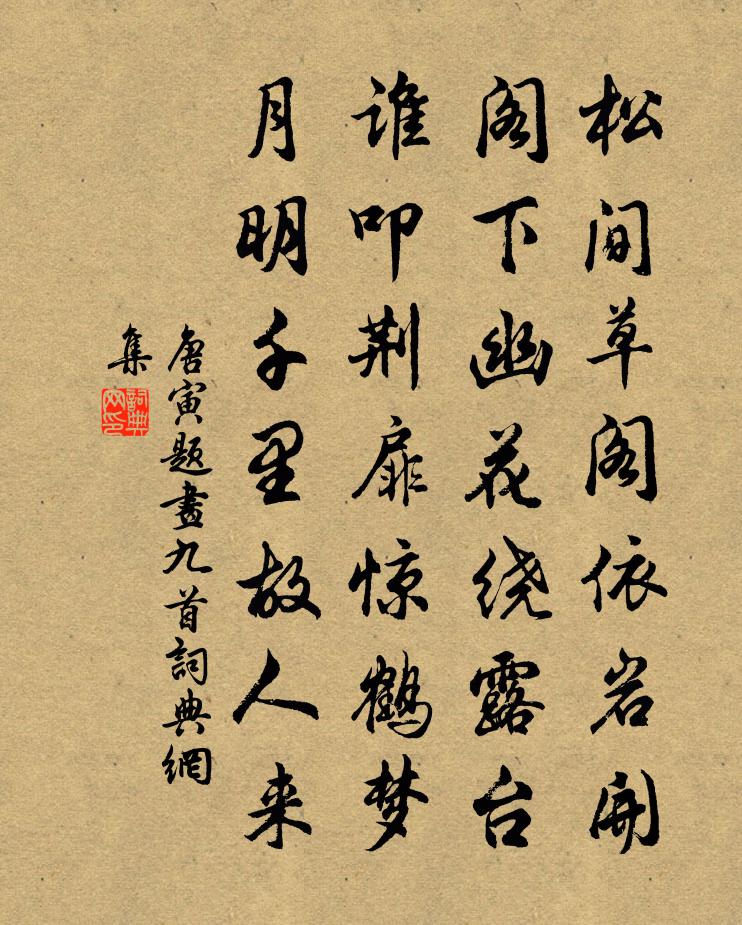 松间草阁依岩开
阁下幽花绕露台
谁叩荆扉惊鹤梦
月明千里故人来
唐寅题畫九首詞典網
集
詞典網印